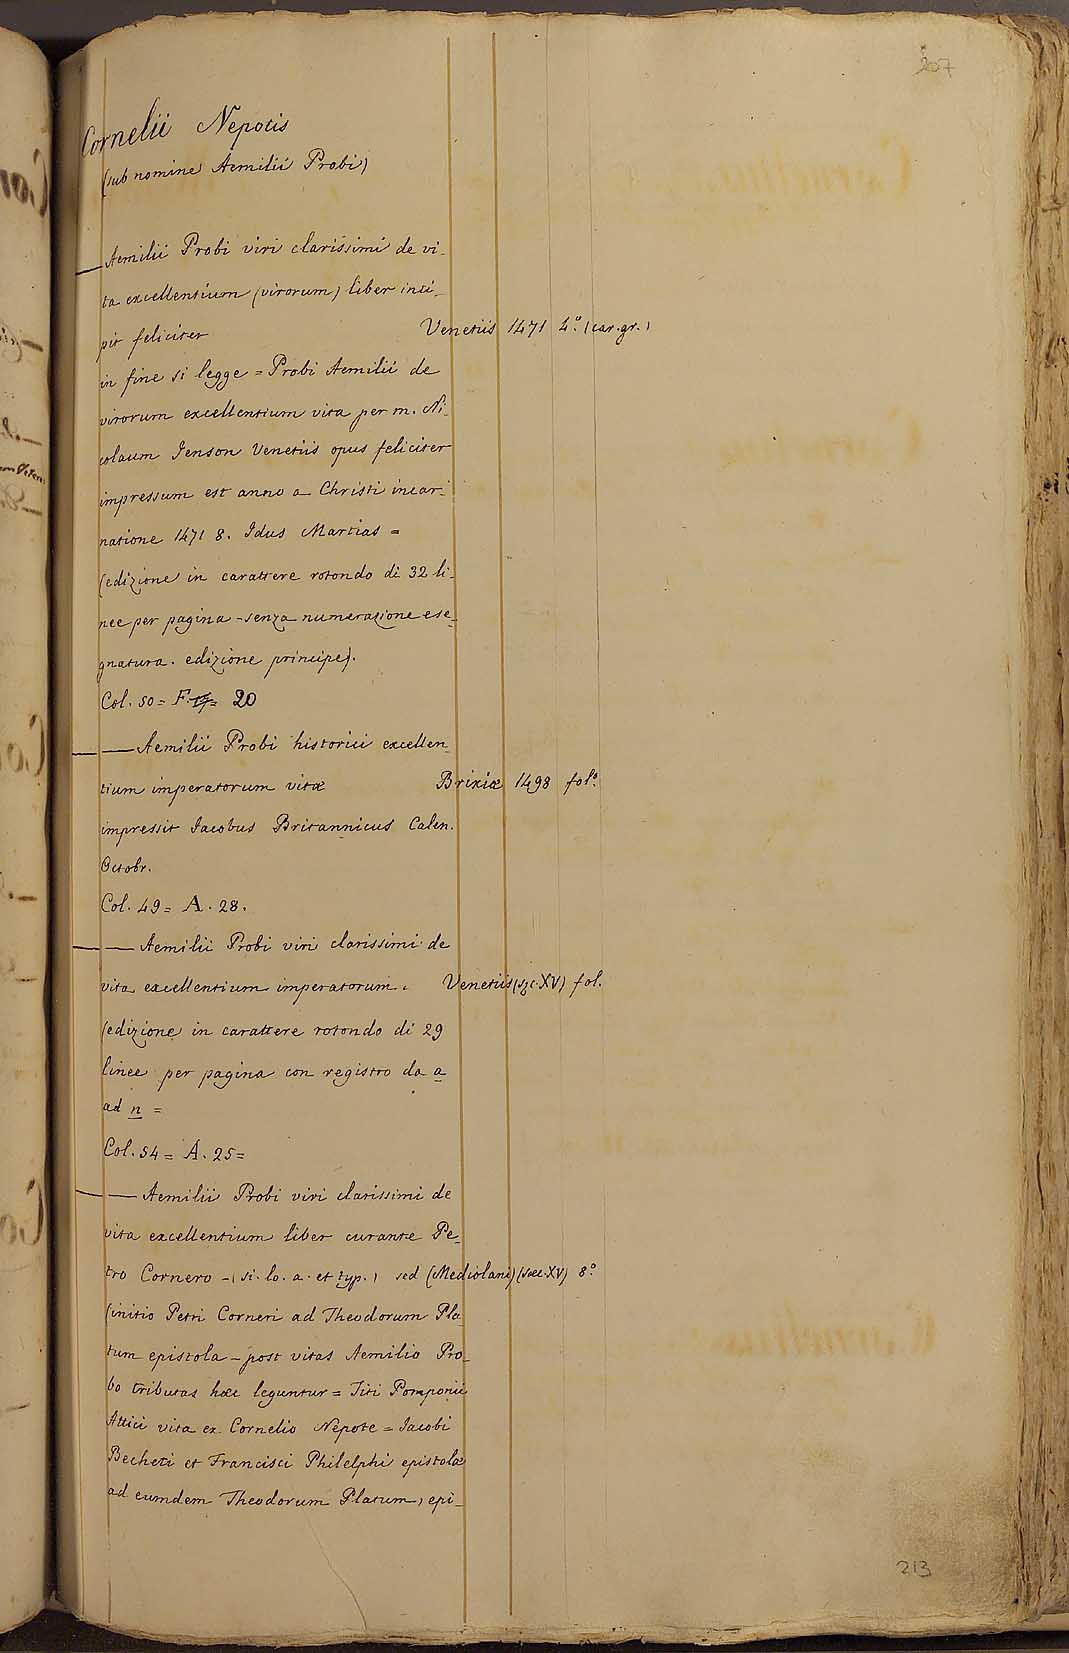 207
Cornelii Nepotis
(sub nomine Aemilii Probi)
— Aemilii Probi viri clarissimi de vi-
ta excellentium (virorum) liber inci-
pit feliciter Venetiis 1471 4.° (car. gr.)
in fine si legge = Probi Aemilii de
virorum excellentium vita per m. Ni-
colaum Jenson Venetiis opus feliciter
impressum est anno a Christi incar-
natione 1471 8. Idus Martias =
(edizione in carattere rotondo di 32 li-
nee per pagina - senza numerazione e se-
gnatura. edizione principe).
Col. 50 = F. 20
— — Aemilii Probi historici excellen-
tium imperatorum vitæ Brixiæ 1498 fol.°
impressit Jacobus Britannicus Calen.
Octobr.
Col. 49 = A. 28.
— — Aemilii Probi viri clarissimi de
vita excellentium imperatorum. Venetiis (sæc. XV) fol.
(edizione in carattere rotondo di 29
linee per pagina con registro da a
ad n =
Col. 54 = A. 25 =
— — Aemilii Probi viri clarissimi de
vita excellentium liber curante Pe-
tro Cornero - (si. lo. a. et typ.) sed (Mediolani) (sæc. XV) 8.°
(initio Petri Corneri ad Theodorum Pla-
tum epistola - post vitas Aemilio Pro-
bo tributas hæc leguntur = Titi Pomponii
Attici vita ex Cornelio Nepote = Jacobi
Becheti et Francisci Philelphi epistolæ
ad eumdem Theodorum Platum, epi-
213